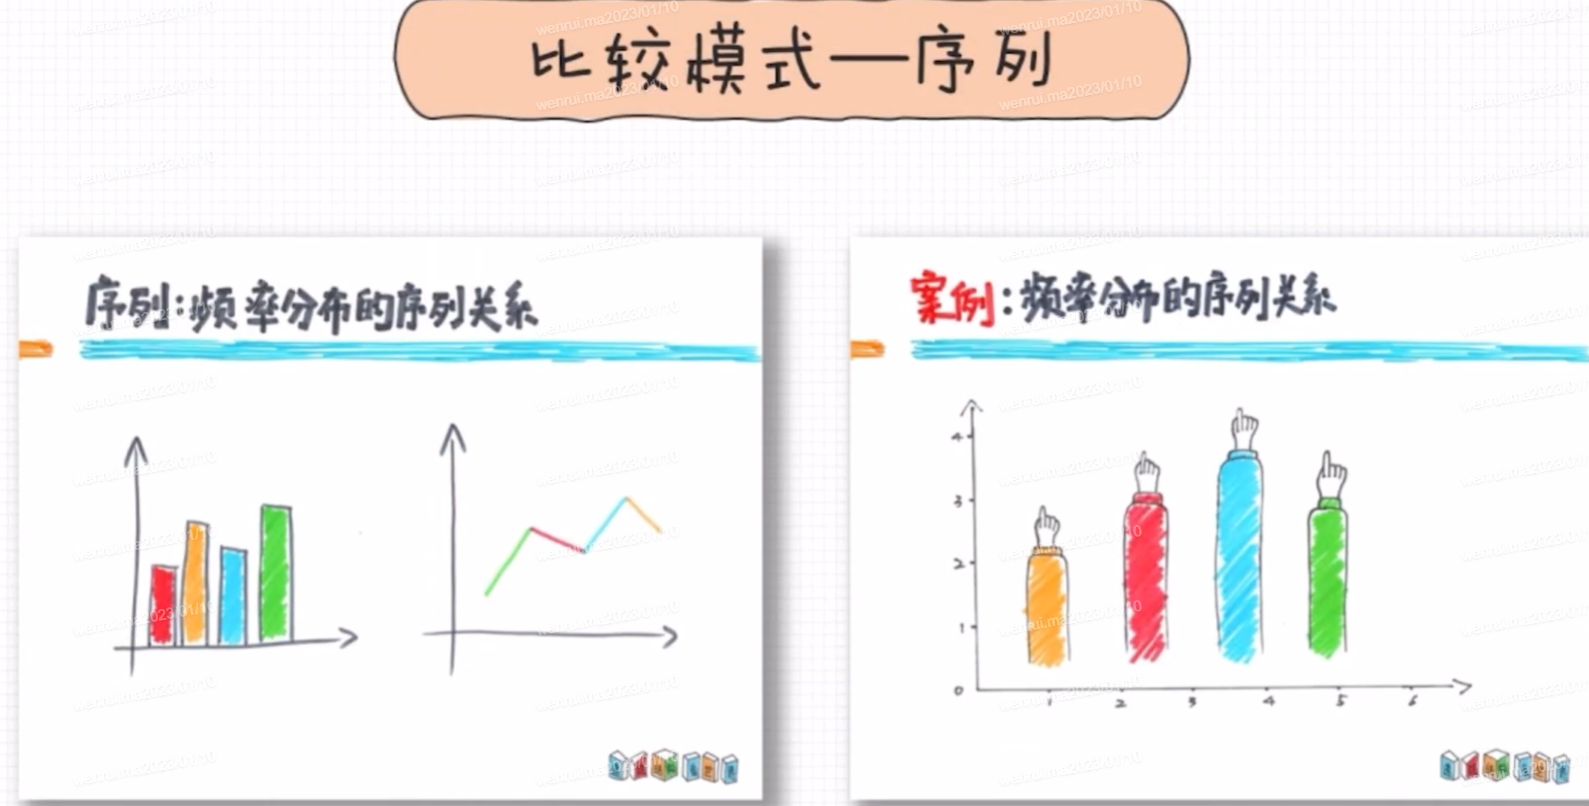 比较模式—序列
序列:频率分布的序列关系
案例:频率分布的序列关系
4
3
2
1
0
1 2 3 4 5 6
wenrui.ma2023/01/10